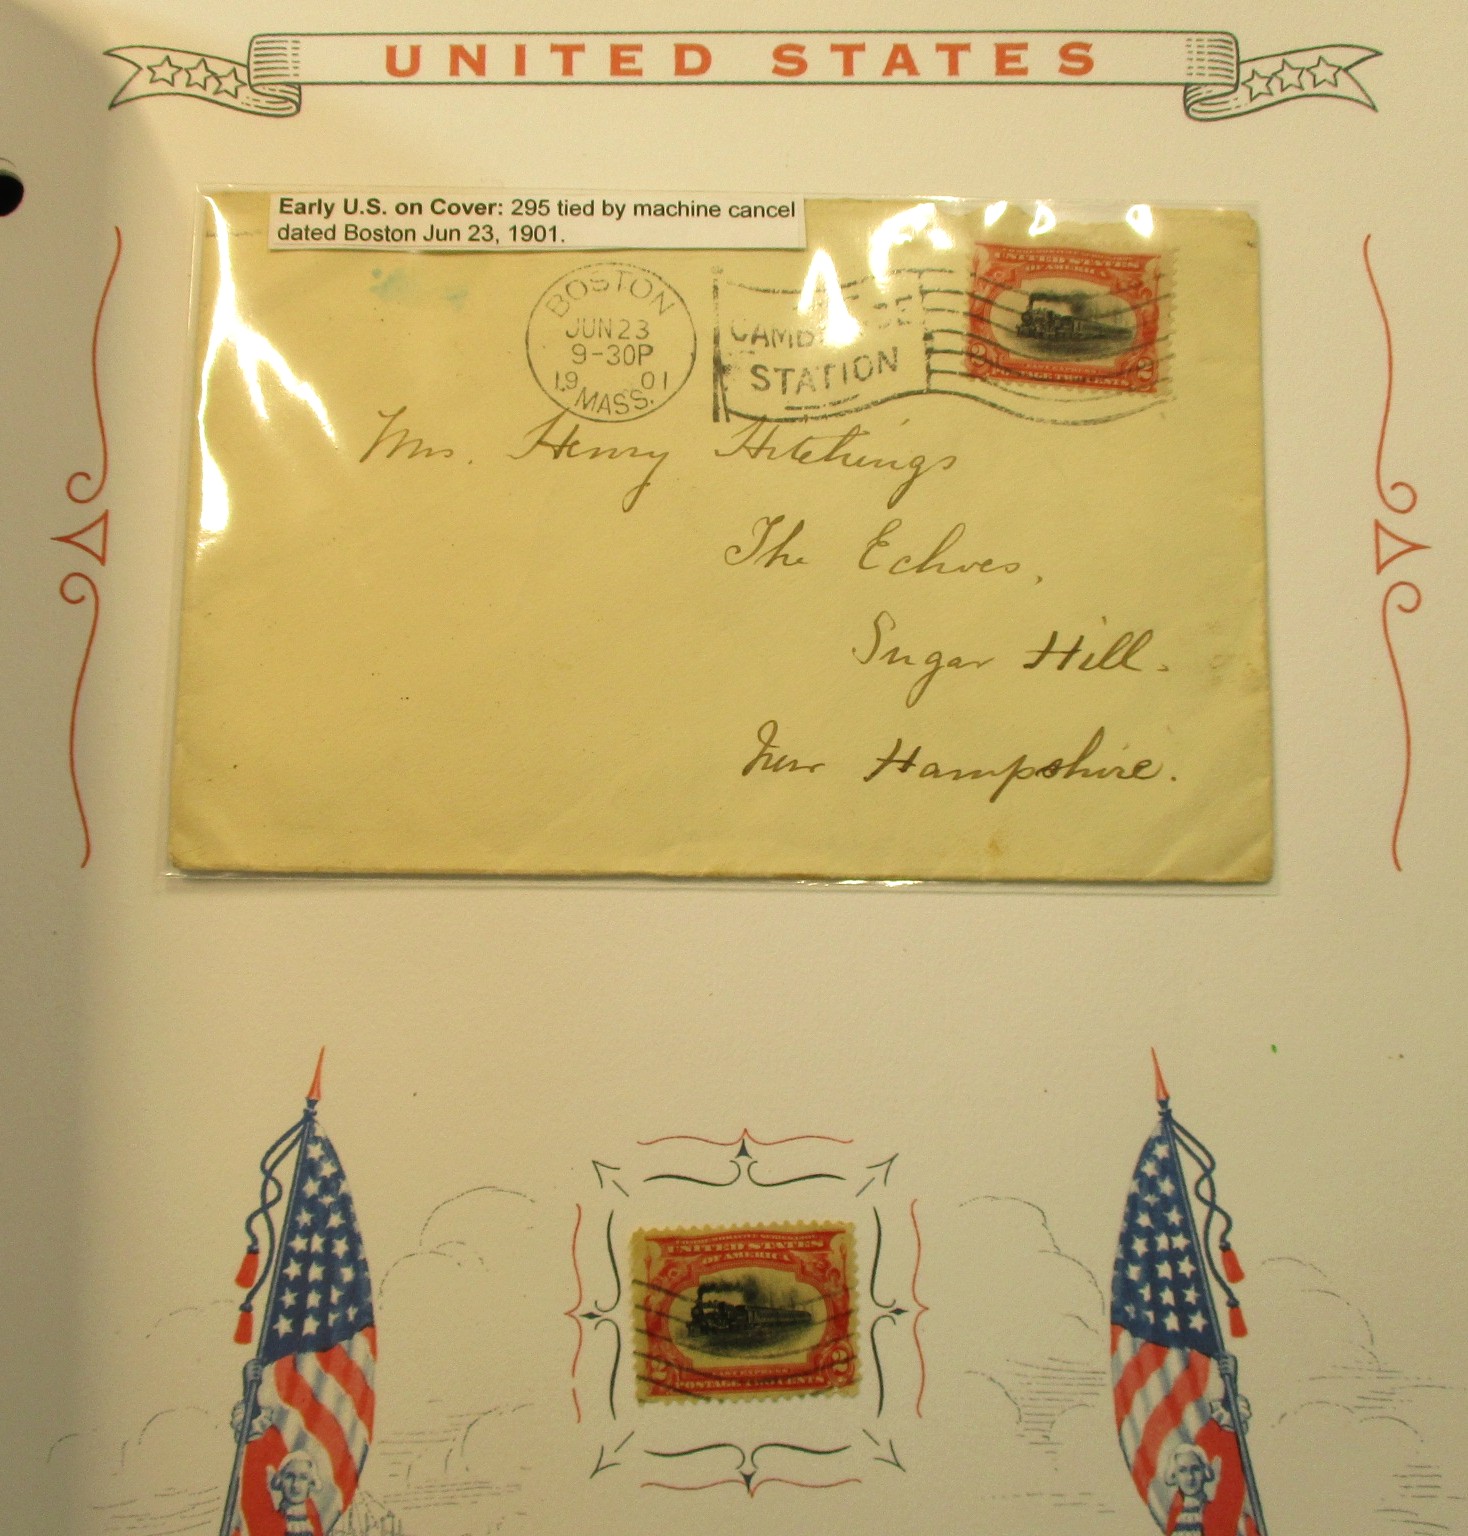 UNITED STATES
Early U.S. on Cover: 295 tied by machine cancel
dated Boston Jun 23, 1901.
BOSTON
JUN 23
9-30P
19 01
MASS.
STATION
UNITED STATES
OF AMERICA
2 2
POSTAGE TWO CENTS
Mrs. Henry Hitchings
The Echoes,
Sugar Hill.
New Hampshire.
COMMEMORATIVE SERIES 1901
UNITED STATES
OF AMERICA
2 2
FAST EXPRESS
POSTAGE TWO CENTS